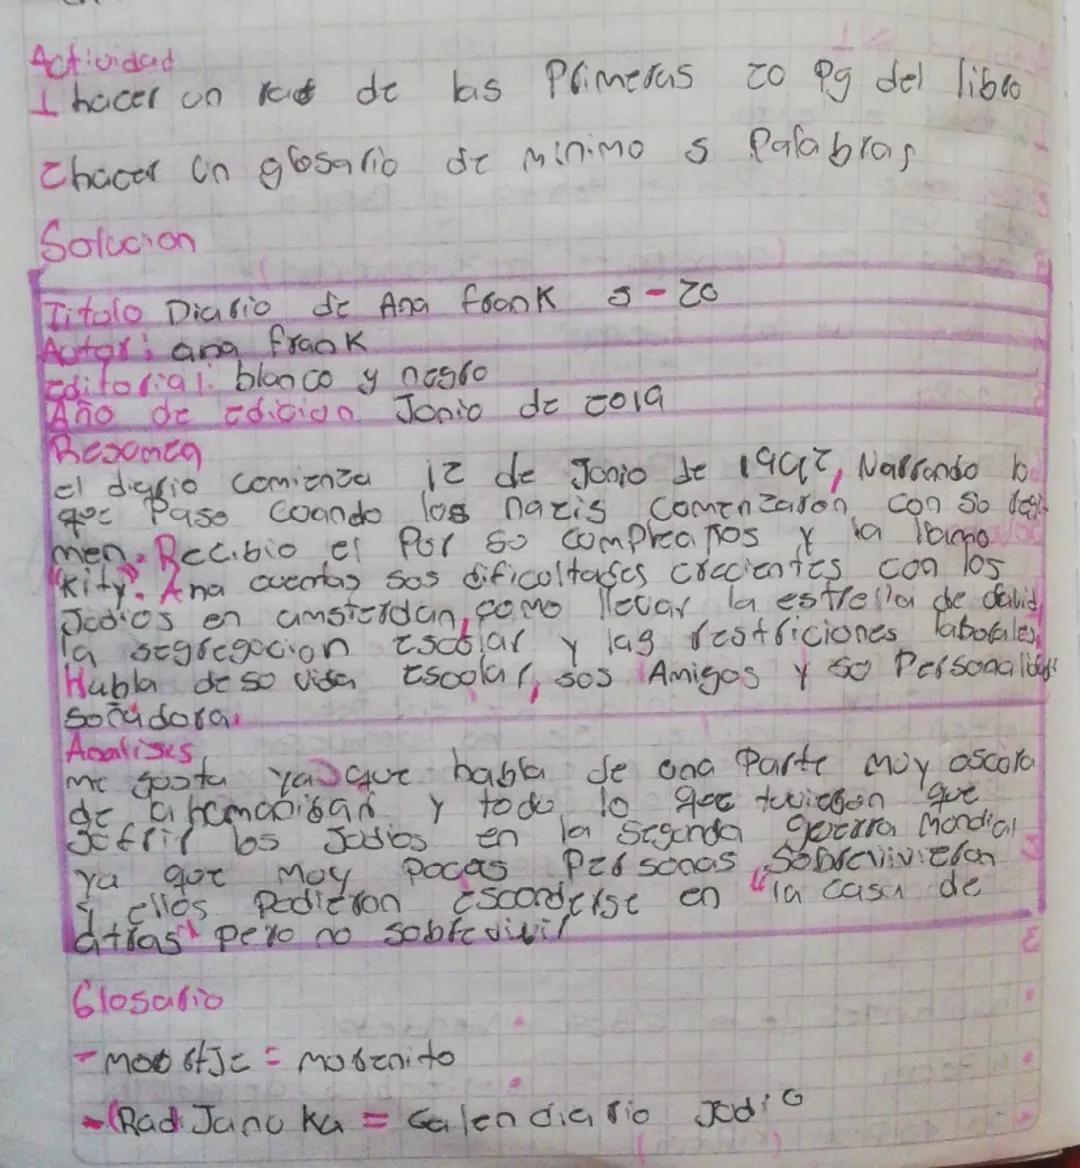 Actividad
1 hacer un rae de las Primeras 20 Pg del libro
2 hacer un glosario de minimo 5 Palabras
Solucion
Titulo Diario de Ana frank 5-20
Autor: ana frank
editorial: blanco y negro
Año de edicion Junio de 2019
Resumen
el diario comienza 12 de Junio de 1942, Narrando lo
que Paso cuando los nazis comenzaron con su regi
men. Recibio el Por su cumpleaños y la llamo
"kity". Ana cuenta sus dificultades crecientes con los
Judios en amsterdan, como llevar la estrella de david,
la segregacion escolar y las restriciones laborales.
Habla de su vida escolar, sus Amigos y su Personalidad
soñadora.
Analises
me gusta ya que habla de una Parte muy oscura
de la humanidad y todo lo que tuvieron que
sufrir los Judios en la Segunda guerra Mondial
ya que muy pocas Personas Sobrevivieron
y ellos Pudieron esconderse en "la casa de
atras" pero no sobrevivir
Glosario
- = morenito
- Janu Ka = Calendiario Judio